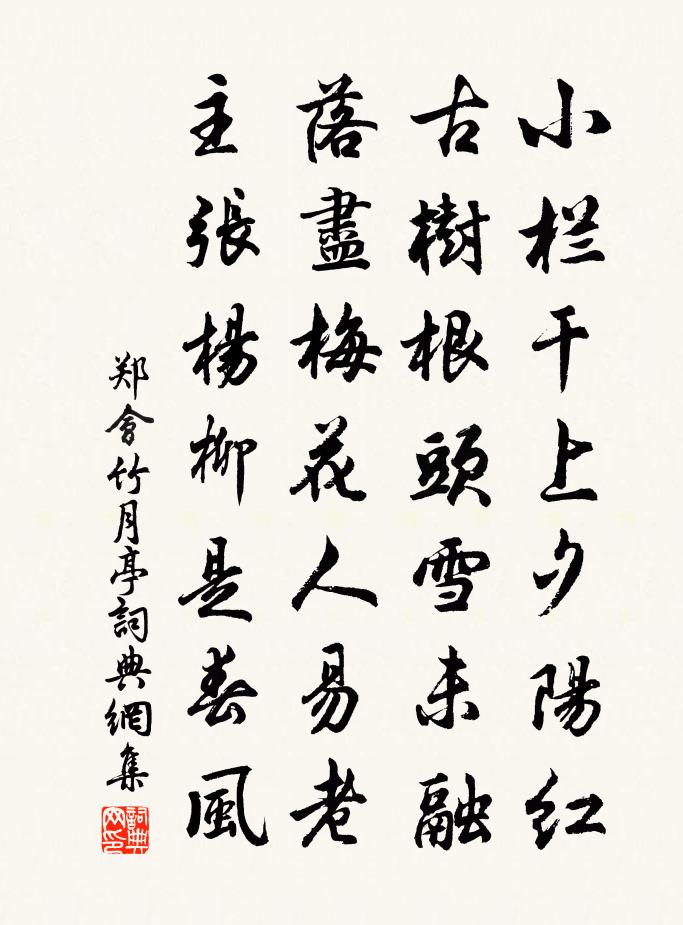 小栏干上夕陽红
古樹根頭雪未融
落盡梅花人易老
主張楊柳是春風
郑會竹月亭詞典網集
詞典网印